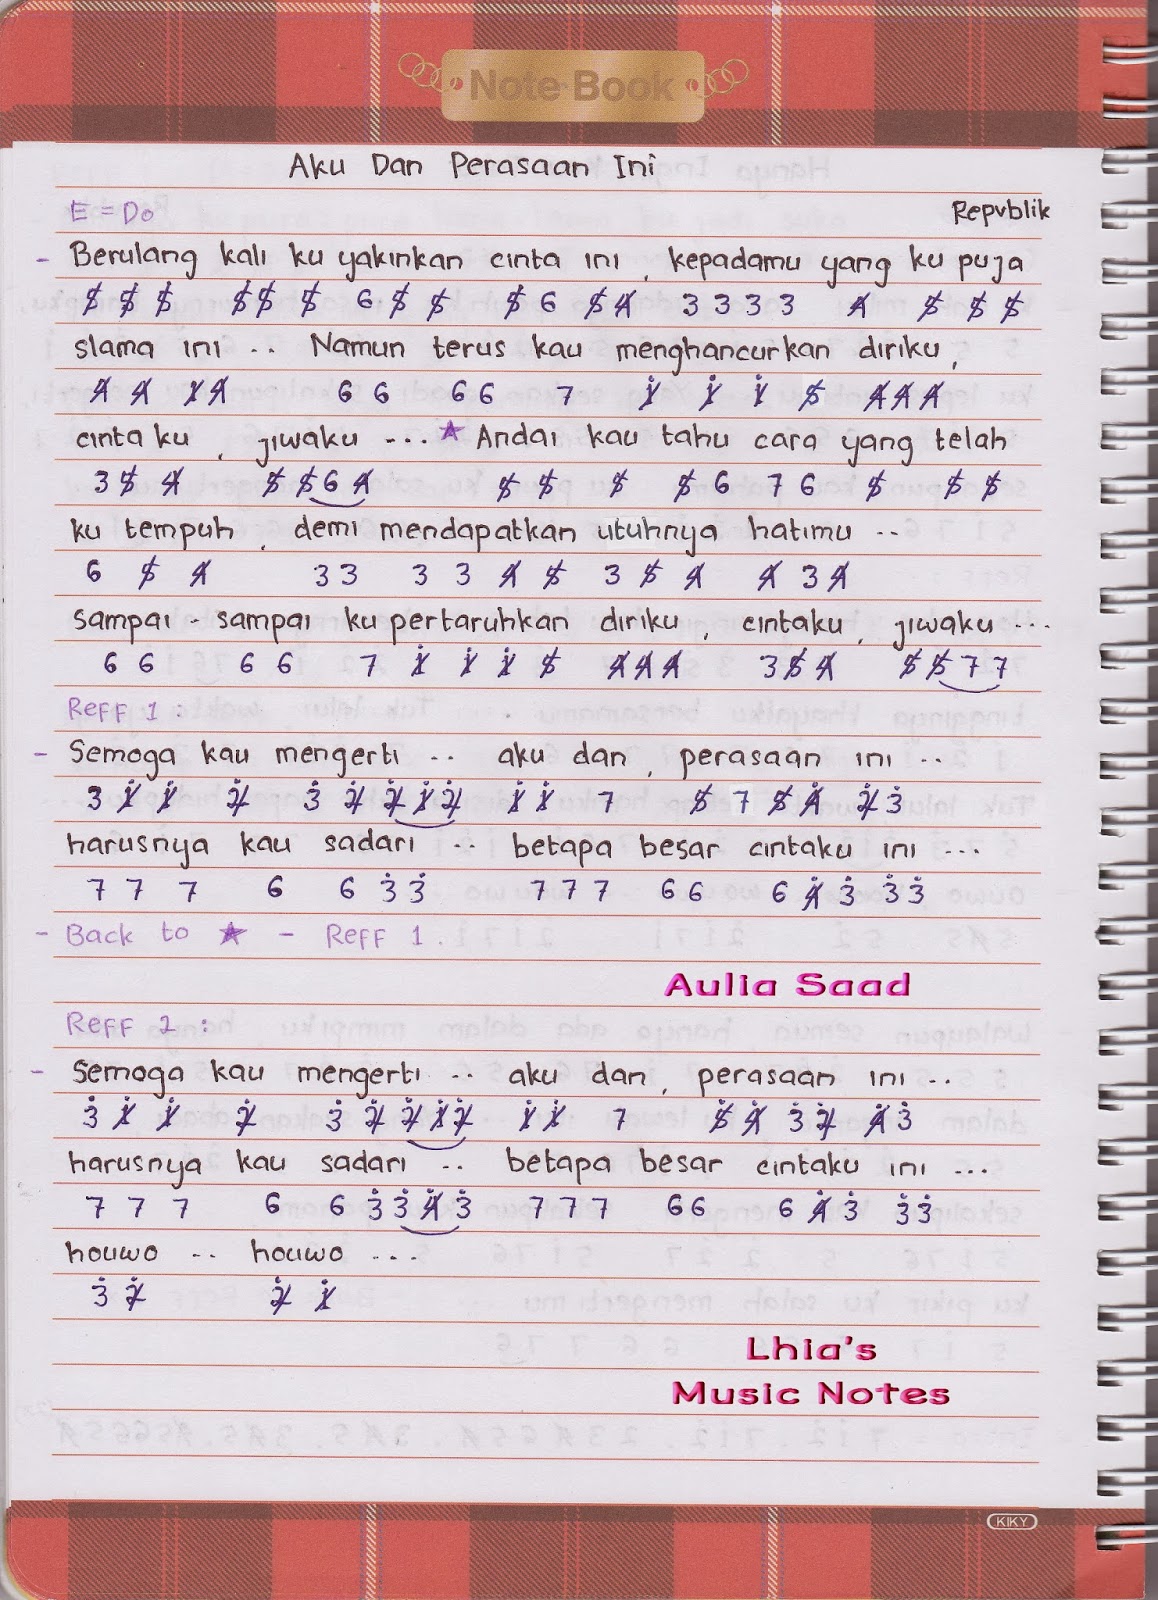 Note Book
Aku Dan Perasaan Ini
E = Do
Repvblik
- Berulang kali ku yakinkan cinta ini , kepadamu yang ku puja
5̸ 5̸ 5̸ 5̸ 5̸ 5̸ 6 5̸ 5̸ 5̸ 6 5̸ 4̸ 3 3 3 3 4̸ 5̸ 5̸ 5̸
slama ini .. Namun terus kau menghancurkan diriku,
4̸ 4̸ 1̸ 4̸ 6 6 6 6 7 1̸̇ 1̸̇ 1̸̇ 5̸ 4̸ 4̸ 4̸
cinta ku , jiwaku ... ★ Andai kau tahu cara yang telah
3 5̸ 4̸ 5̸ 5̸ 6 4̸ 5̸ 5̸ 5̸ 5̸ 6 7 6 5̸ 5̸ 5̸
ku tempuh , demi mendapatkan utuhnya hatimu ..
6 5̸ 4̸ 3 3 3 3 4̸ 5̸ 3 5̸ 4̸ 4̸ 3 4̸
sampai - sampai ku pertaruhkan diriku , cintaku , jiwaku ...
6 6 6 6 7 1̸̇ 1̸̇ 1̸̇ 5̸ 4̸ 4̸ 4̸ 3 5̸ 4̸ 5̸ 5̸ 7 7
Reff 1 :
- Semoga kau mengerti .. aku dan , perasaan ini ..
3 1̸̇ 1̸̇ 2̸̇ 3̇ 2̸̇ 2̸̇ 1̸̇ 2̸̇ 1̸̇ 1̸̇ 7 5̸ 7 5̸ 4̸̇ 2̸̇ 3̇
harusnya kau sadari .. betapa besar cintaku ini ...
7 7 7 6 6 3̇ 3̇ 7 7 7 6 6 6 4̸̇ 3̇ 3̇ 3̇
- Back to ★ - Reff 1 .
Aulia Saad
Reff 2 :
- Semoga kau mengerti .. aku dan , perasaan ini ..
3̇ 1̸̇ 1̸̇ 2̸̇ 3̇ 2̸̇ 2̸̇ 1̸̇ 2̸̇ 1̸̇ 1̸̇ 7 5̸̇ 4̸̇ 3̇ 2̸̇ 4̸̇ 3̇
harusnya kau sadari .. betapa besar cintaku ini ...
7 7 7 6 6 3̇ 3̇ 4̸̇ 3̇ 7 7 7 6 6 6 4̸̇ 3̇ 3̇ 3̇
houwo .. houwo ...
3̇ 2̸̇ 2̸̇ 1̸̇
Lhia's
Music Notes
KIKY